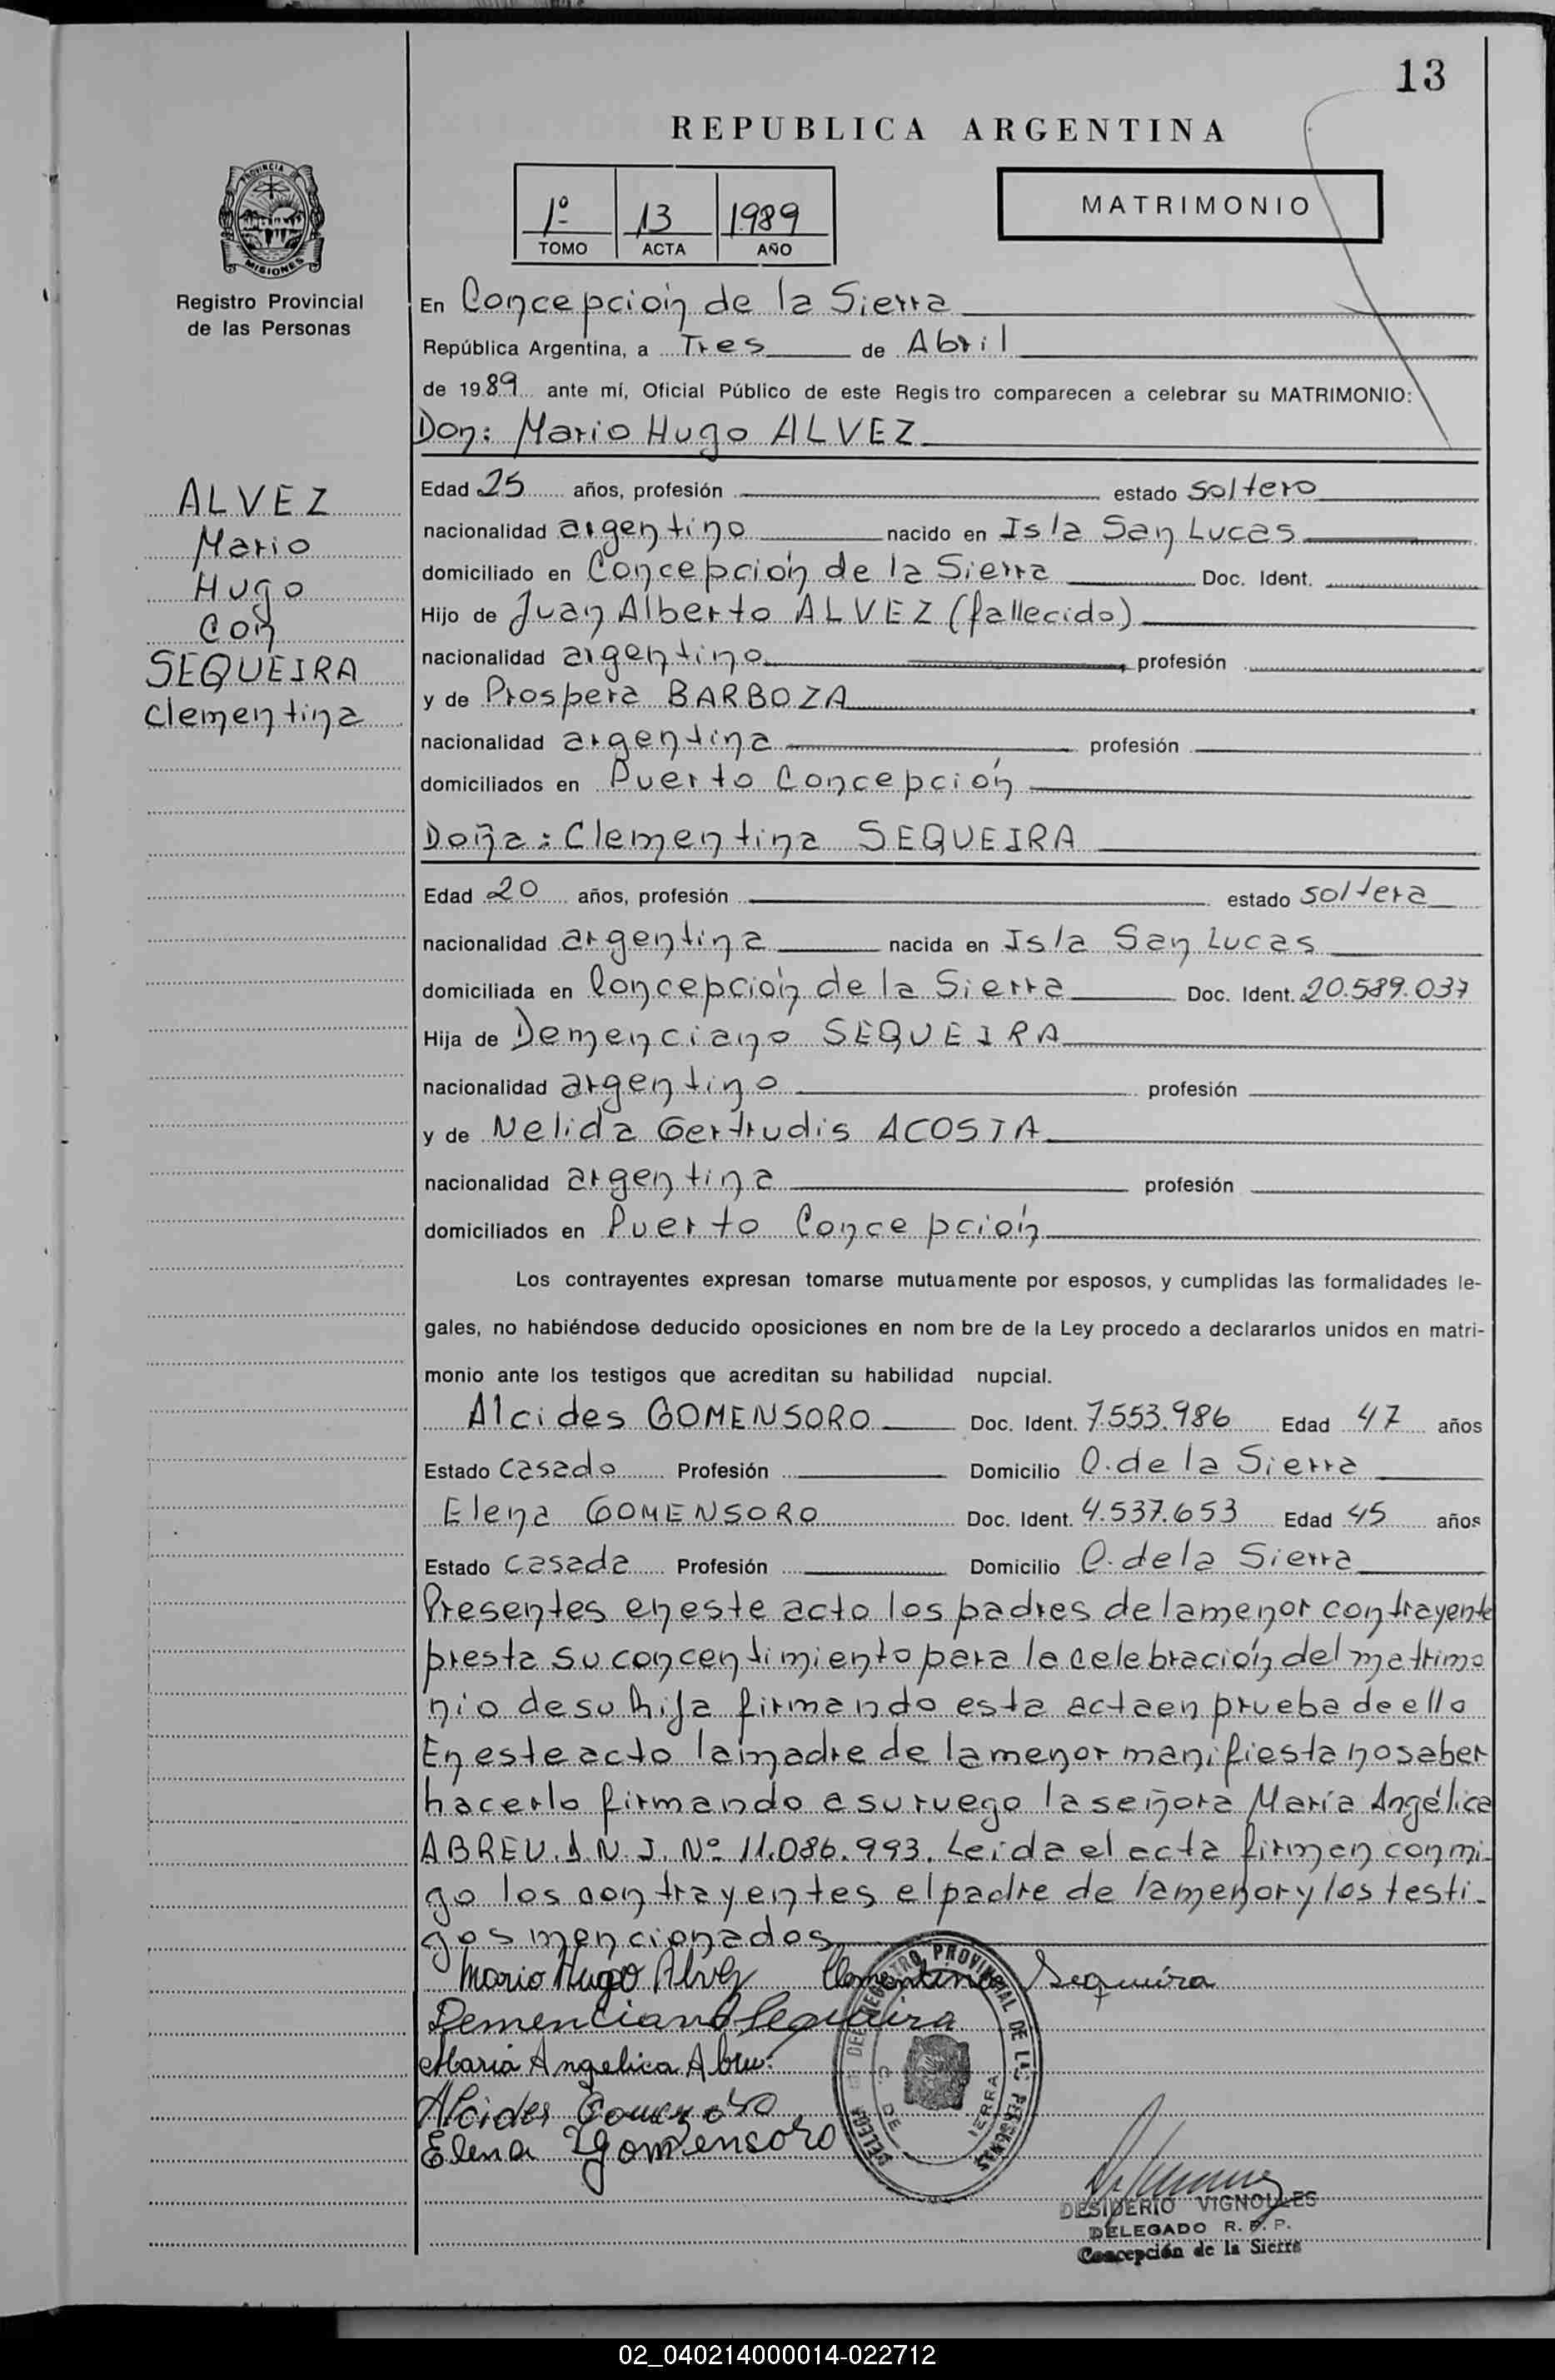 13
REPUBLICA ARGENTINA
PROVINCIA DE
MISIONES
Registro Provincial
de las Personas
1º 13 1989
TOMO ACTA AÑO
MATRIMONIO
En Concepción de la Sierra
República Argentina, a Tres de Abril
de 1989 ante mí, Oficial Público de este Registro comparecen a celebrar su MATRIMONIO:
Don: Mario Hugo ALVEZ
ALVEZ
Mario
Hugo
Con
SEQUEIRA
Clementina
Edad 25 años, profesión estado soltero
nacionalidad argentino nacido en Isla San Lucas
domiciliado en Concepción de la Sierra Doc. Ident.
Hijo de Juan Alberto ALVEZ (fallecido)
nacionalidad argentino, profesión
y de Prospera BARBOZA
nacionalidad argentina profesión
domiciliados en Puerto Concepción
Doña: Clementina SEQUEIRA
Edad 20 años, profesión estado soltera
nacionalidad argentina nacida en Isla San Lucas
domiciliada en Concepción de la Sierra Doc. Ident. 20.589.037
Hija de Demenciano SEQUEIRA
nacionalidad argentino profesión
y de Nelida Gertrudis ACOSTA
nacionalidad argentina profesión
domiciliados en Puerto Concepción
Los contrayentes expresan tomarse mutuamente por esposos, y cumplidas las formalidades le-
gales, no habiéndose deducido oposiciones en nom bre de la Ley procedo a declararlos unidos en matri-
monio ante los testigos que acreditan su habilidad nupcial.
Alcides GOMENSORO Doc. Ident. 7.553.986 Edad 47 años
Estado casado Profesión Domicilio C. de la Sierra
Elena GOMENSORO Doc. Ident. 4.537.653 Edad 45 años
Estado casada Profesión Domicilio C. de la Sierra
Presentes en este acto los padres de la menor contrayente
presta su concentimiento para la celebración del matrimo
nio de su hija firmando esta acta en prueba de ello
En este acto la madre de la menor manifiesta no saber
hacerlo firmando a su ruego la señora María Angélica
ABREU. D.N.I. Nº 11.086.993. Leida el acta firman conmi-
go los contrayentes, el padre de la menor y los testi-
gos mencionados
Mario Hugo Alvez Clementina Sequeira
Demenciano Sequeira
Maria Angelica Abreu
Alcides Gomensoro
Elena Gomensoro
DEL REGISTRO PROVINCIAL DE LAS PERSONAS
C. DE SIERRA
DESIDERIO VIGNOLLES
DELEGADO R. P. P.
Concepción de la Sierra
02_040214000014-022712